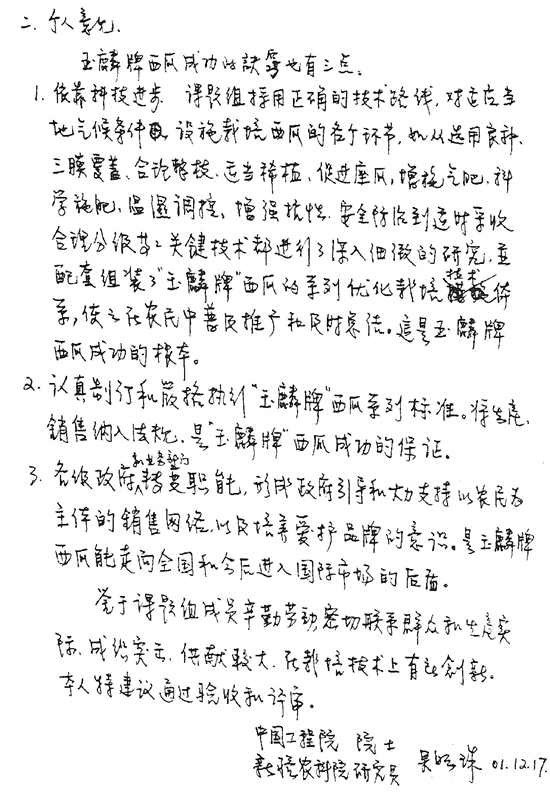 二、个人意见.
玉麟牌西瓜成功的訣窍也有三点:
1. 依靠科技进步 课题组採用正确的技术路线, 对适应当
地气候条件及设施栽培西瓜的各个环节, 如从选用良种、
三膜覆盖、合理整枝、适当稀植、促进座瓜、增施气肥、科
学施肥、温湿调控、增强抗性、安全防治到适时采收
合理分级等之关键技术都进行了深入细微的研究, 並
配套组装了"玉麟牌"西瓜的系列优化栽培技术体
系, 使之在农民中普及推广和及时总结。這是玉麟牌
西瓜成功的根本。
2. 认真制订和嚴格执行"玉麟牌"西瓜系列标准。将生産、
銷售纳入法规, 是"玉麟牌"西瓜成功的保证。
3. 各级政府和业务部门转变职能, 形成政府引导和大力支持以农民为
主体的销售网络, 以及培养爱护品牌的意识。是玉麟牌
西瓜能走向全国和今后进入国际市场的后盾。
鉴于课题组成员辛勤劳动密切联系群众和生産实
际, 成绩突出, 供献较大, 在栽培技术上有所创新。
本人特建议通过验收和评审。
中国工程院 院士
新疆农科院研究员 吴明珠 01.12.17.